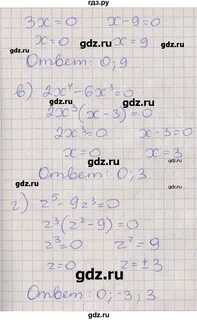 гдз.ру
3x=0 x-9=0
x=0 x=9
Ответ: 0; 9
в) 2x⁴-6x³=0
2x³(x-3)=0
2x³=0 x-3=0
x=0 x=3
Ответ: 0, 3
г) z⁵-9z³=0
z³(z²-9)=0
z³=0 z²=9
z=0 z=±3
Ответ: 0; -3; 3
gdz.ru
gdz.ru
gdz.ru
gdz.ru
gdz.ru
gdz.ru
gdz.ru
gdz.ru